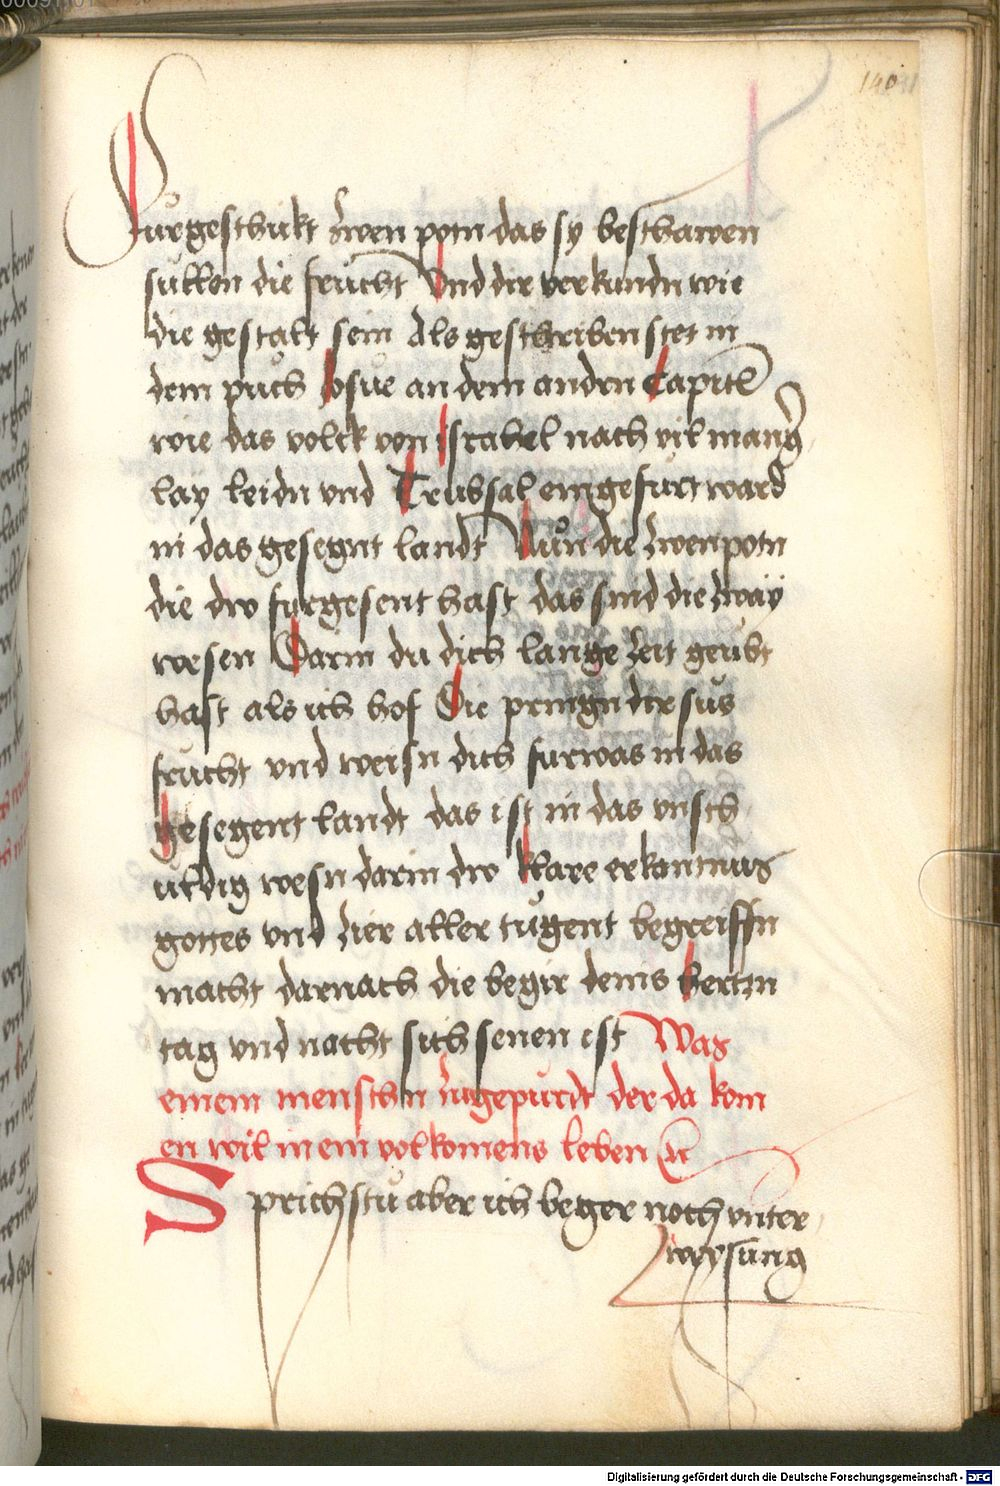 140
Furgeschikt zwen potn das sy beschawen
sullen die frucht Vnd dir verkundn wie
die gestalt sein Als geschriben stet in
dem puch Josue an dem andrn Capitl
wie das volck von israhel nach vil mang
lay leidn vnd Trubsal eingefürt ward
in das gesegnt landt Nŭn die zwen potn
die dw furgesent hast das sind die zwaÿ
wesen Darin du dich lange zeit geŭbt
hast als ich hof Die pringn dir sŭs
frŭcht vnd weisn dich furwas in das
gesegent landt das ist in das vnsch
uldig wesn darin dw klare erkantnus
gottes vnd zier aller tŭgent begreiffn
macht darnach die begir deins hertzn
tag vnd nacht sich senen ist Was
einem menschn zugepürdt der da kom
en wil in ein volkomens leben
Sprichstŭ aber ich beger noch vnter
weysŭng
Digitalisierung gefördert durch die Deutsche Forschungsgemeinschaft - DFG